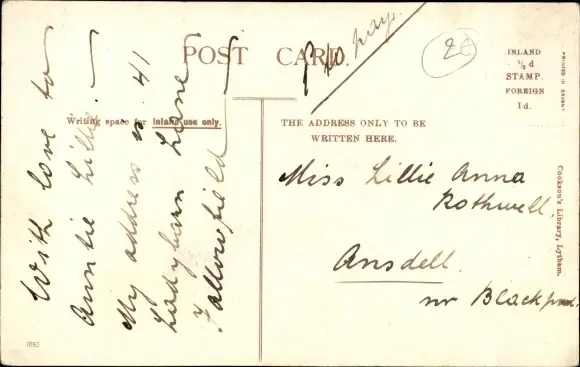 POST CARD.
to pay.
26
INLAND
½ d
STAMP.
FOREIGN
1d.
PRINTED IN SAXONY
Writing space for inland use only.
With love to
Auntie Lillie.
My address is 41
Ladybarn Lane
Fallowfield
THE ADDRESS ONLY TO BE
WRITTEN HERE.
Miss Lillie Anna
Rothwell
Ansdell.
nr Blackpool.
Cookson's Library, Lytham.
1092